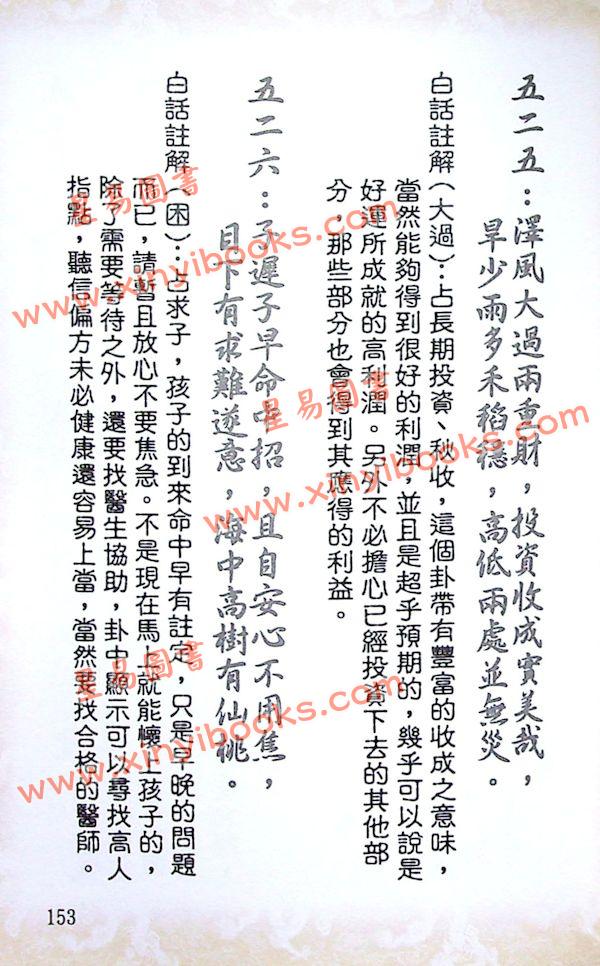 五二五：澤風大過兩重財，投資收成實美哉，
旱少雨多禾稻穩，高低兩處並無災。
白話註解（大過）：占長期投資、秋收，這個卦帶有豐富的收成之意味，
當然能夠得到很好的利潤，並且是超乎預期的，幾乎可以說是
好運所成就的高利潤。另外不必擔心已經投資下去的其他部
分，那些部分也會得到其應得的利益。
五二六：子遲子早命中招，且自安心不用焦，
目下有求難遂意，海中高樹有仙桃。
白話註解（困）：占求子，孩子的到來命中早有註定，只是早晚的問題
而已，請暫且放心不要焦急。不是現在馬上就能懷上孩子的，
除了需要等待之外，還要找醫生協助，卦中顯示可以尋找高人
指點，聽信偏方未必健康還容易上當，當然要找合格的醫師。
153
星易圖書
www.xinyibooks.com
星易圖書
www.xinyibooks.com
星易圖書
www.xinyibooks.com